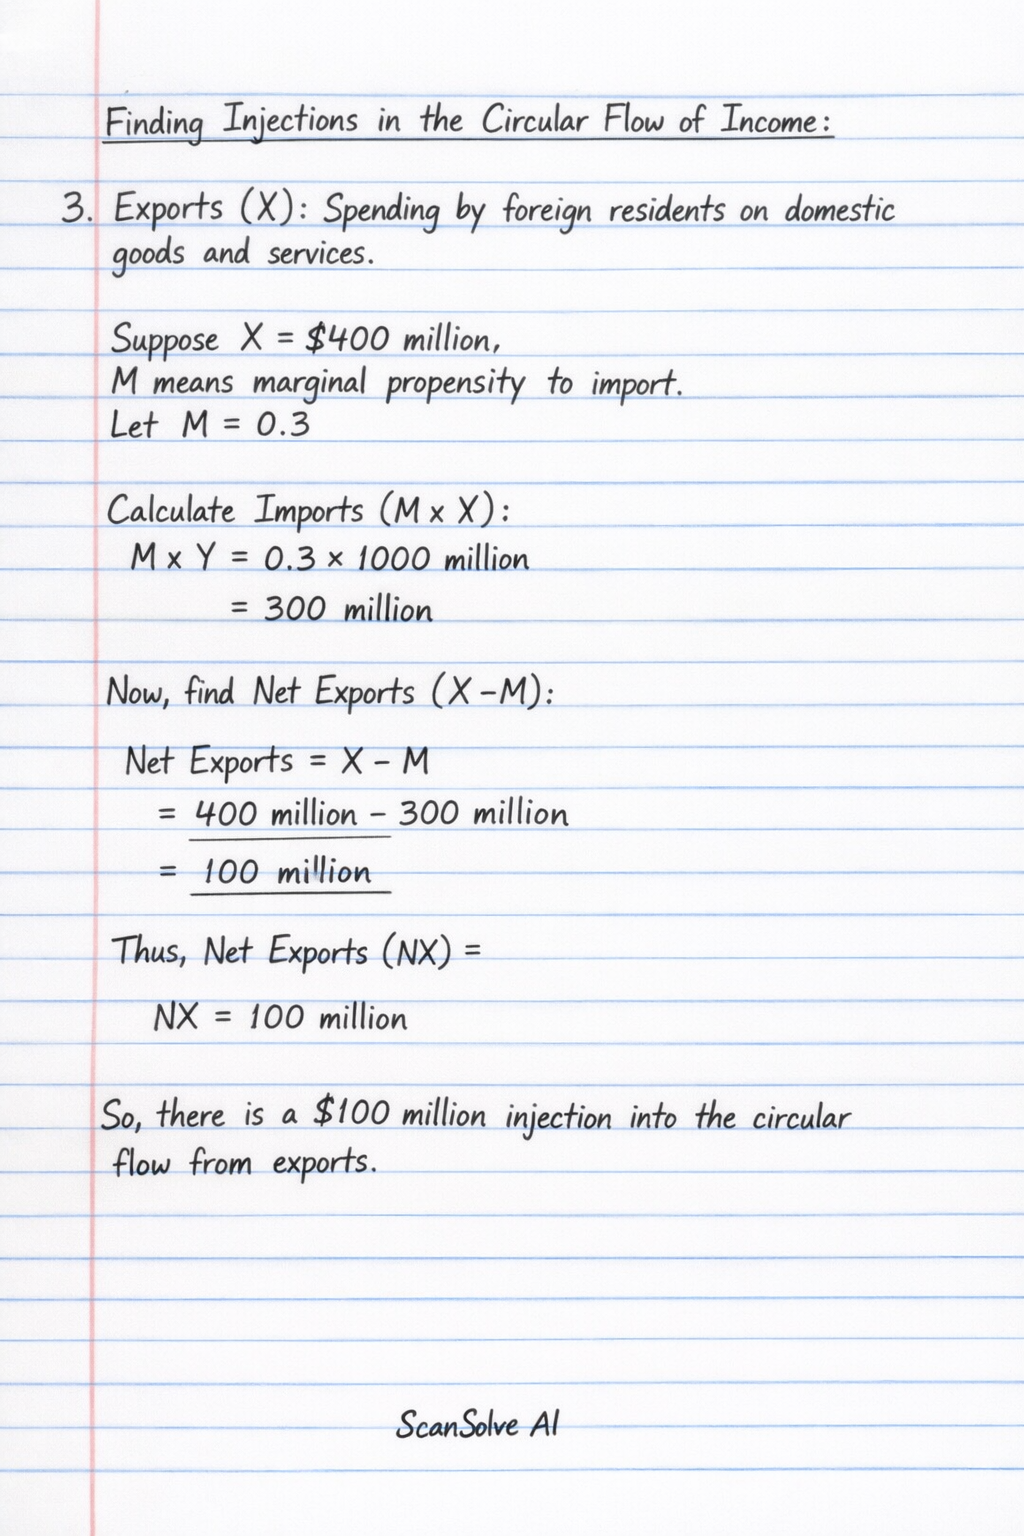 Finding Injections in the Circular Flow of Income:
3. Exports (X): Spending by foreign residents on domestic
goods and services.
Suppose X = $400 million,
M means marginal propensity to import.
Let M = 0.3
Calculate Imports (M x X):
M x Y = 0.3 x 1000 million
= 300 million
Now, find Net Exports (X - M):
Net Exports = X - M
= 400 million - 300 million
= 100 million
Thus, Net Exports (NX) =
NX = 100 million
So, there is a $100 million injection into the circular
flow from exports.
ScanSolve AI